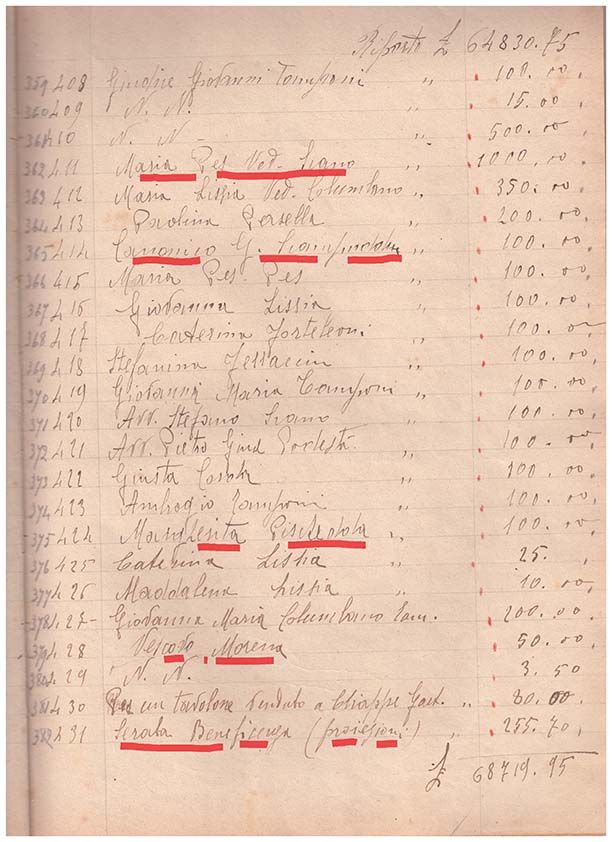 Riporto £ 64830.75
359 408 Giuseppe Giovanni Tamponi " 100.00,
360 409 N. N. " 15.00,
361 410 N. N- " 500.00,
362 411 Maria Pes Ved. Siano " 1000,00,
363 412 Maria Lissia Ved. Columbano " 350.00,
364 413 Paolina Persella " 200.00,
365 414 Canonico G. " 100.00,
366 415 Maria Pes. Pes " 100.00,
367 416 Giovanna Lissia " 100.00,
368 417 Caterina Forteleoni " 100.00,
369 418 Stefanina " 100.00,
370 419 Giovanna Maria Tamponi " 100.00,
371 420 Avv. Stefano Siano " 100.00,
372 421 Avv. Pietro " 100.00,
373 422 Giusta " 100.00,
374 423 Ambrogio Tamponi " 100.00,
375 424 Margherita " 100.00,
376 425 Caterina Lissia " 25.,
377 426 Maddalena Lissia " 10.00,
378 427- Giovanna Maria Columbano Tam. 200.00,
379 428 Vescovo Morena 50.00,
380 429 N. N. " 3.50
381 430 Per un tavolone venduto a Chiappe Gaet. " 80.00,
382 431 Serata Beneficenza (proiezioni) " 255.70,
£ 68719.95